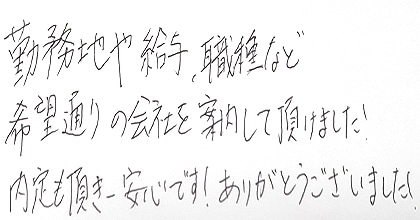 勤務地や給与、職種など
希望通りの会社を案内して頂けました!
内定も頂き一安心です!ありがとうございました!